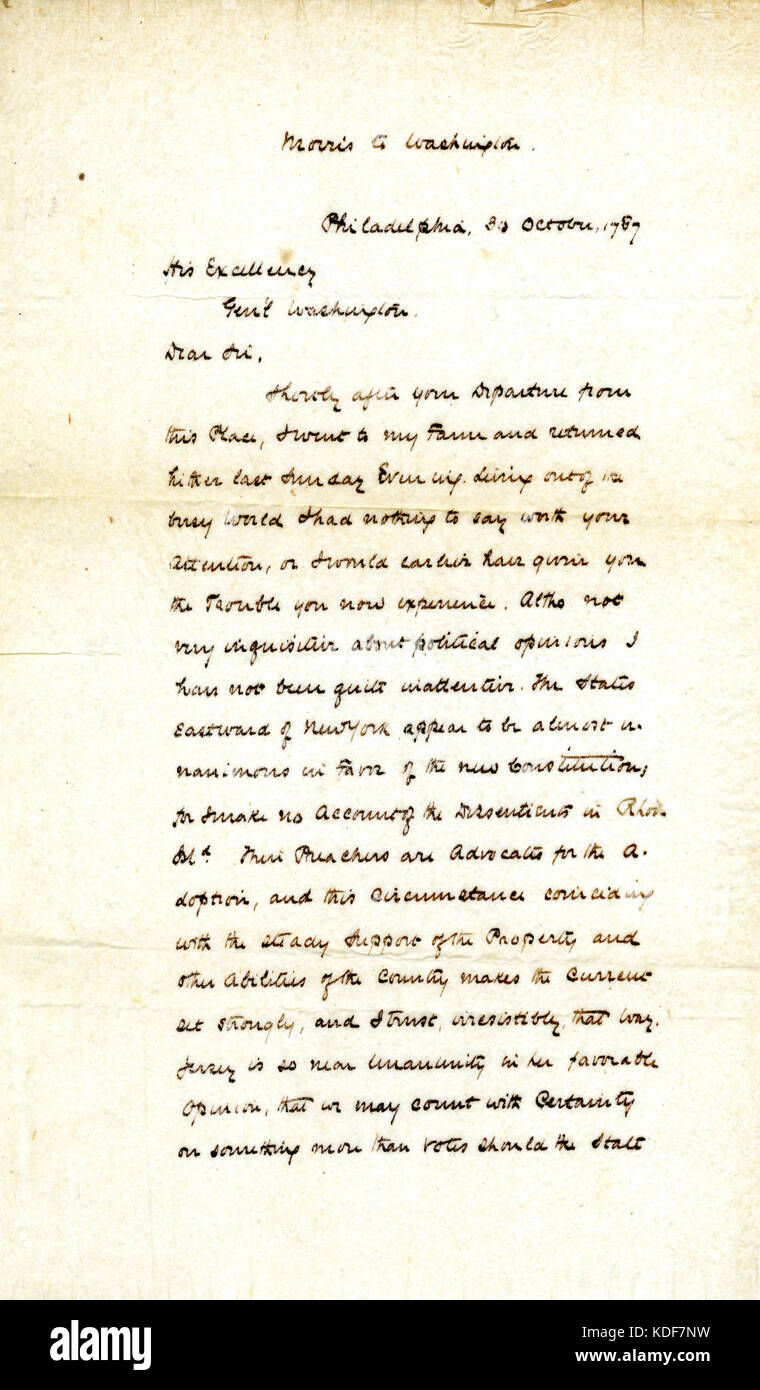 Morris to Washington.
Philadelphia, 30 October, 1787
His Excellency
Gen'l Washington.
Dear Sir,
Shortly after your Departure from
this Place, I went to my Farm and returned
hither last Sunday Evening. Living out of the
busy World I had nothing to say worth your
Attention, or I would earlier have given you
the Trouble you now experience. Altho not
very inquisitive about political opinions I
have not been quite inattentive. The States
Eastward of New York appear to be almost u-
nanimous in Favor of the new Constitution,
for I make no Account of the Dissentients in Rhode
Isl.d Their Preachers are Advocates for the A-
doption, and this Circumstance coinciding
with the steady Support of the Property and
other Abilities of the Country makes the Current
set strongly, and I trust, irresistibly, that Way.
Jersey is so near Unanimity in her favorable
Opinion, that we may count with Certainty
on something more than Votes should the State
alamy
alamy
Image ID: KDF7NW
www.alamy.com